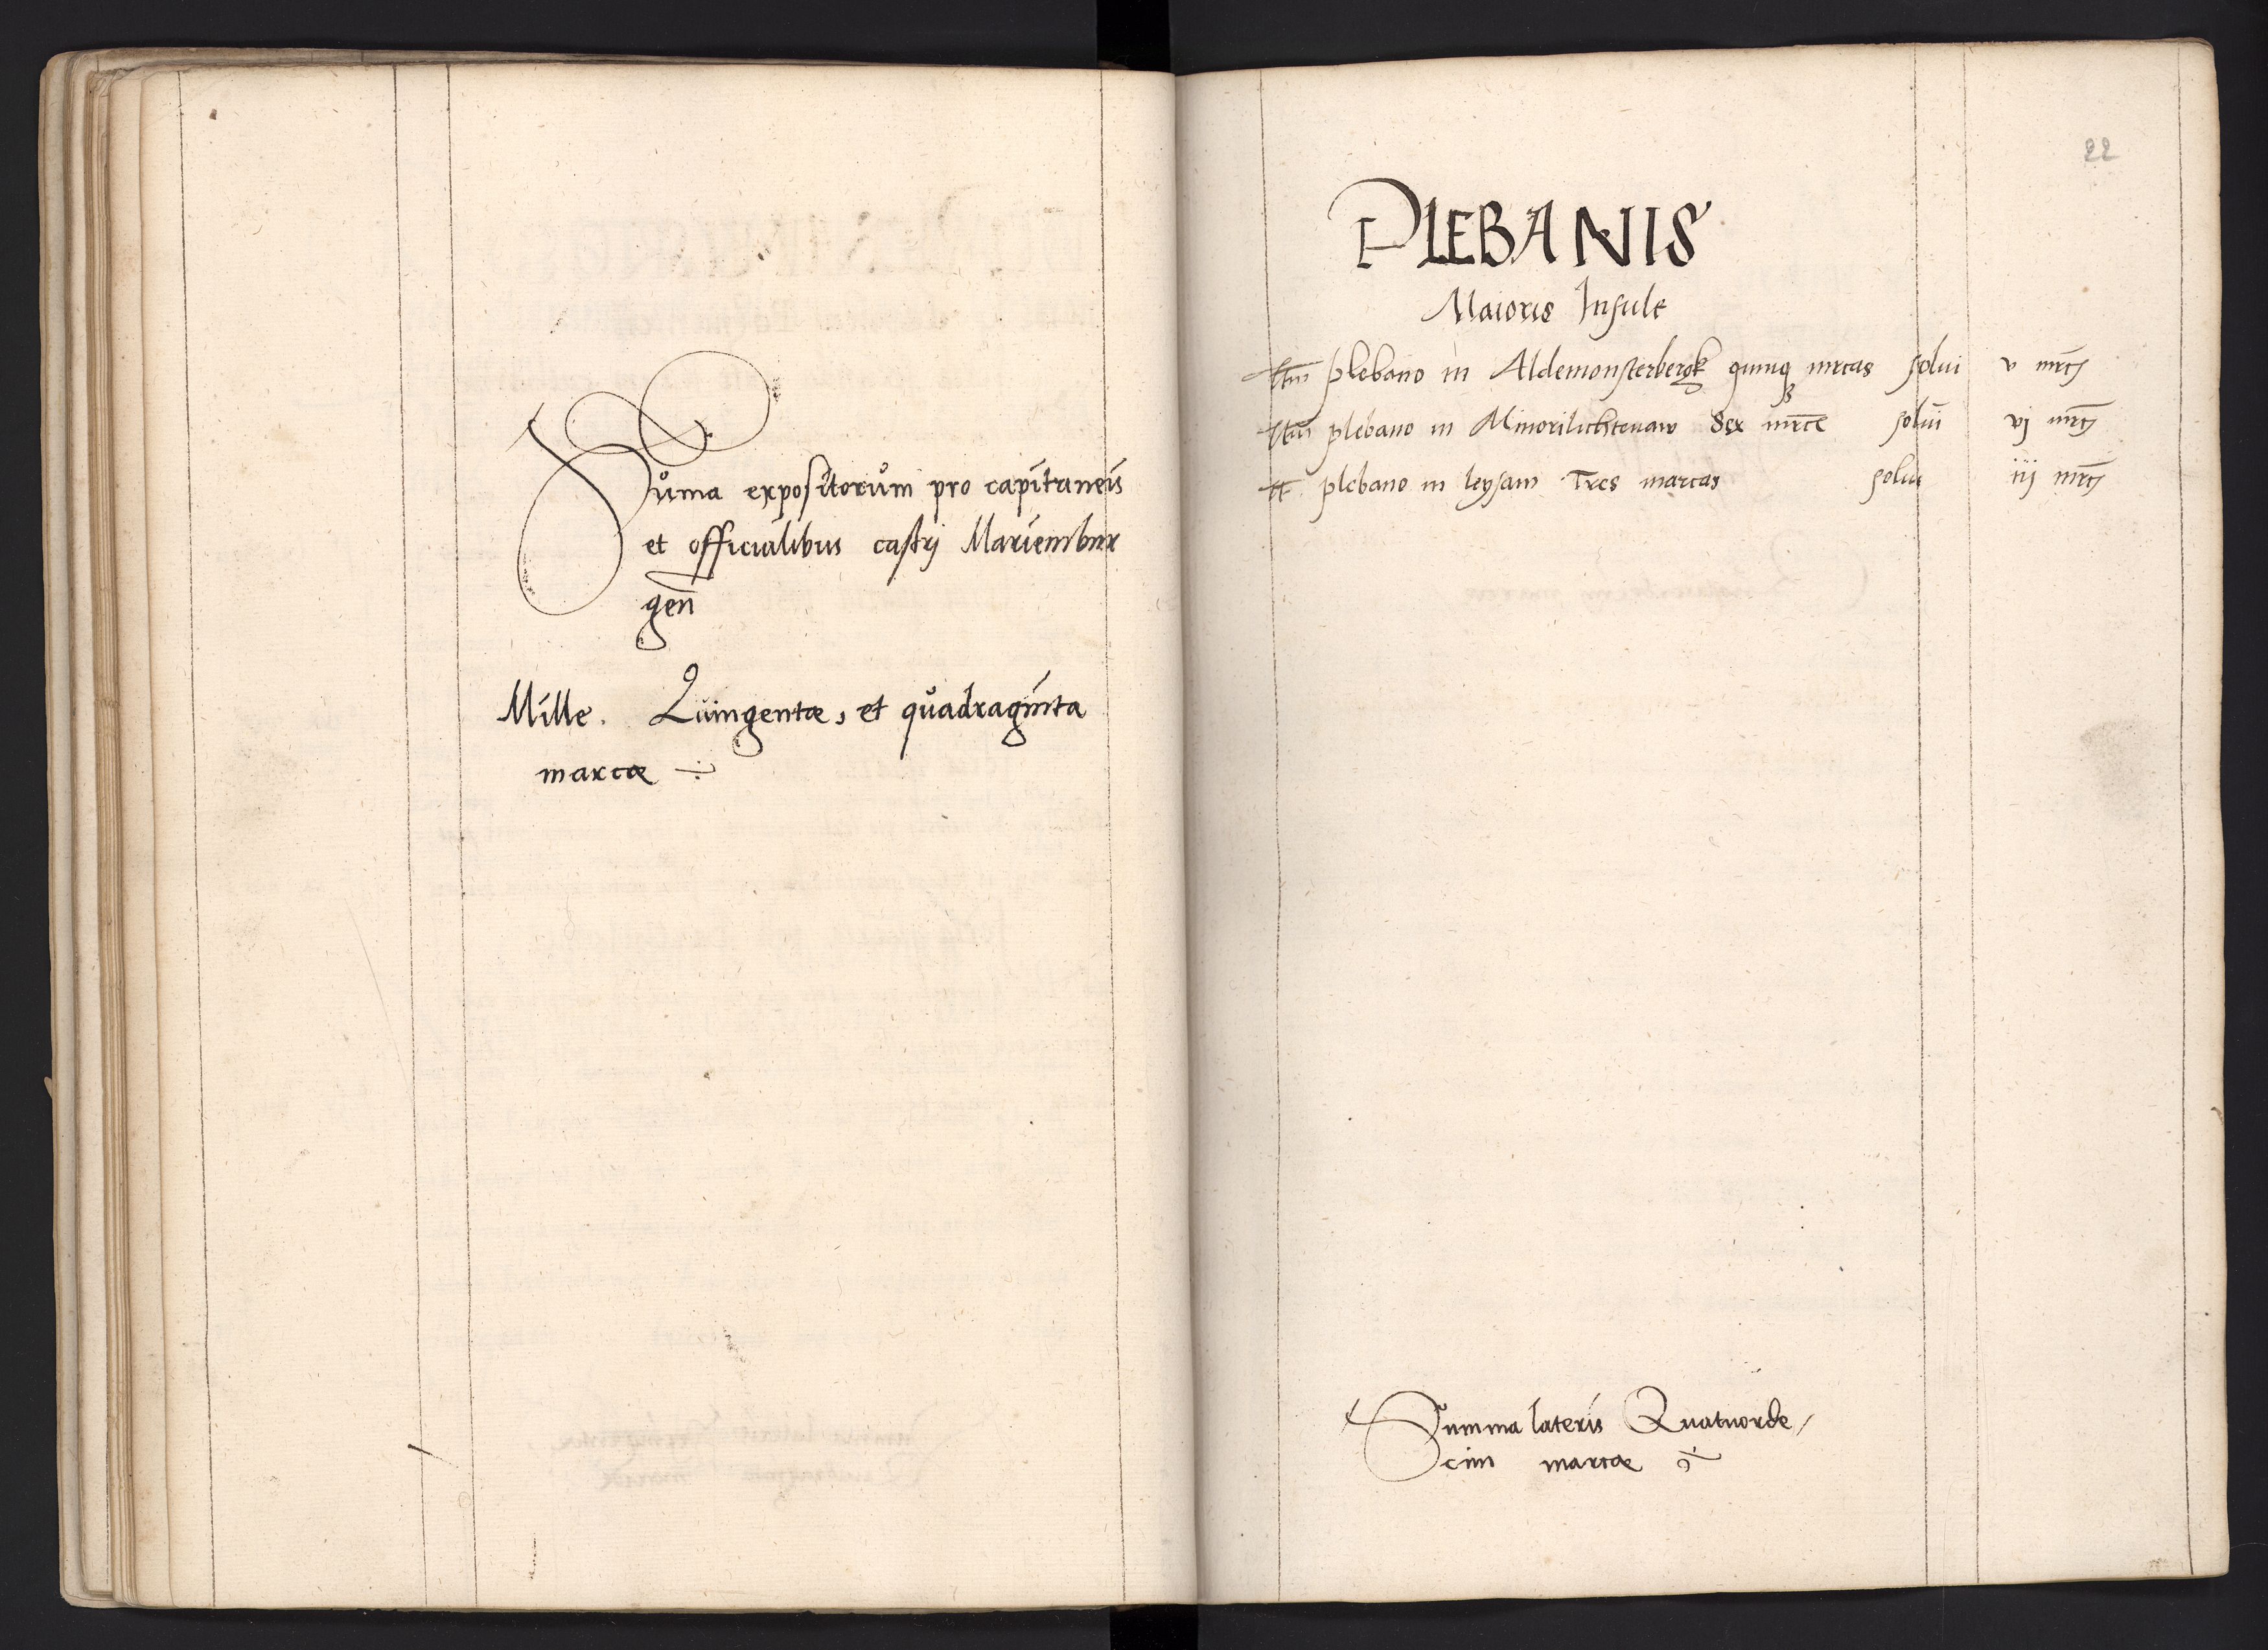 Suma expositorum pro capitaneis
et officialibus castrj Mariembur
gen̄
Mille. Quingentæ, et quadraginta
marcæ
22
PLEBANIS
Maioris Insule
Itm̄ plebano in Aldemonsterbergk quinqȝ mrcas solui v mrc̄
Itm̄ plebano in Minorilichtenaw Sex mrce solui vj mrc̄
It plebano in leysaw Tres marcas solui iij mrc̄
Summa lateris Quatuorde/
cim marcæ